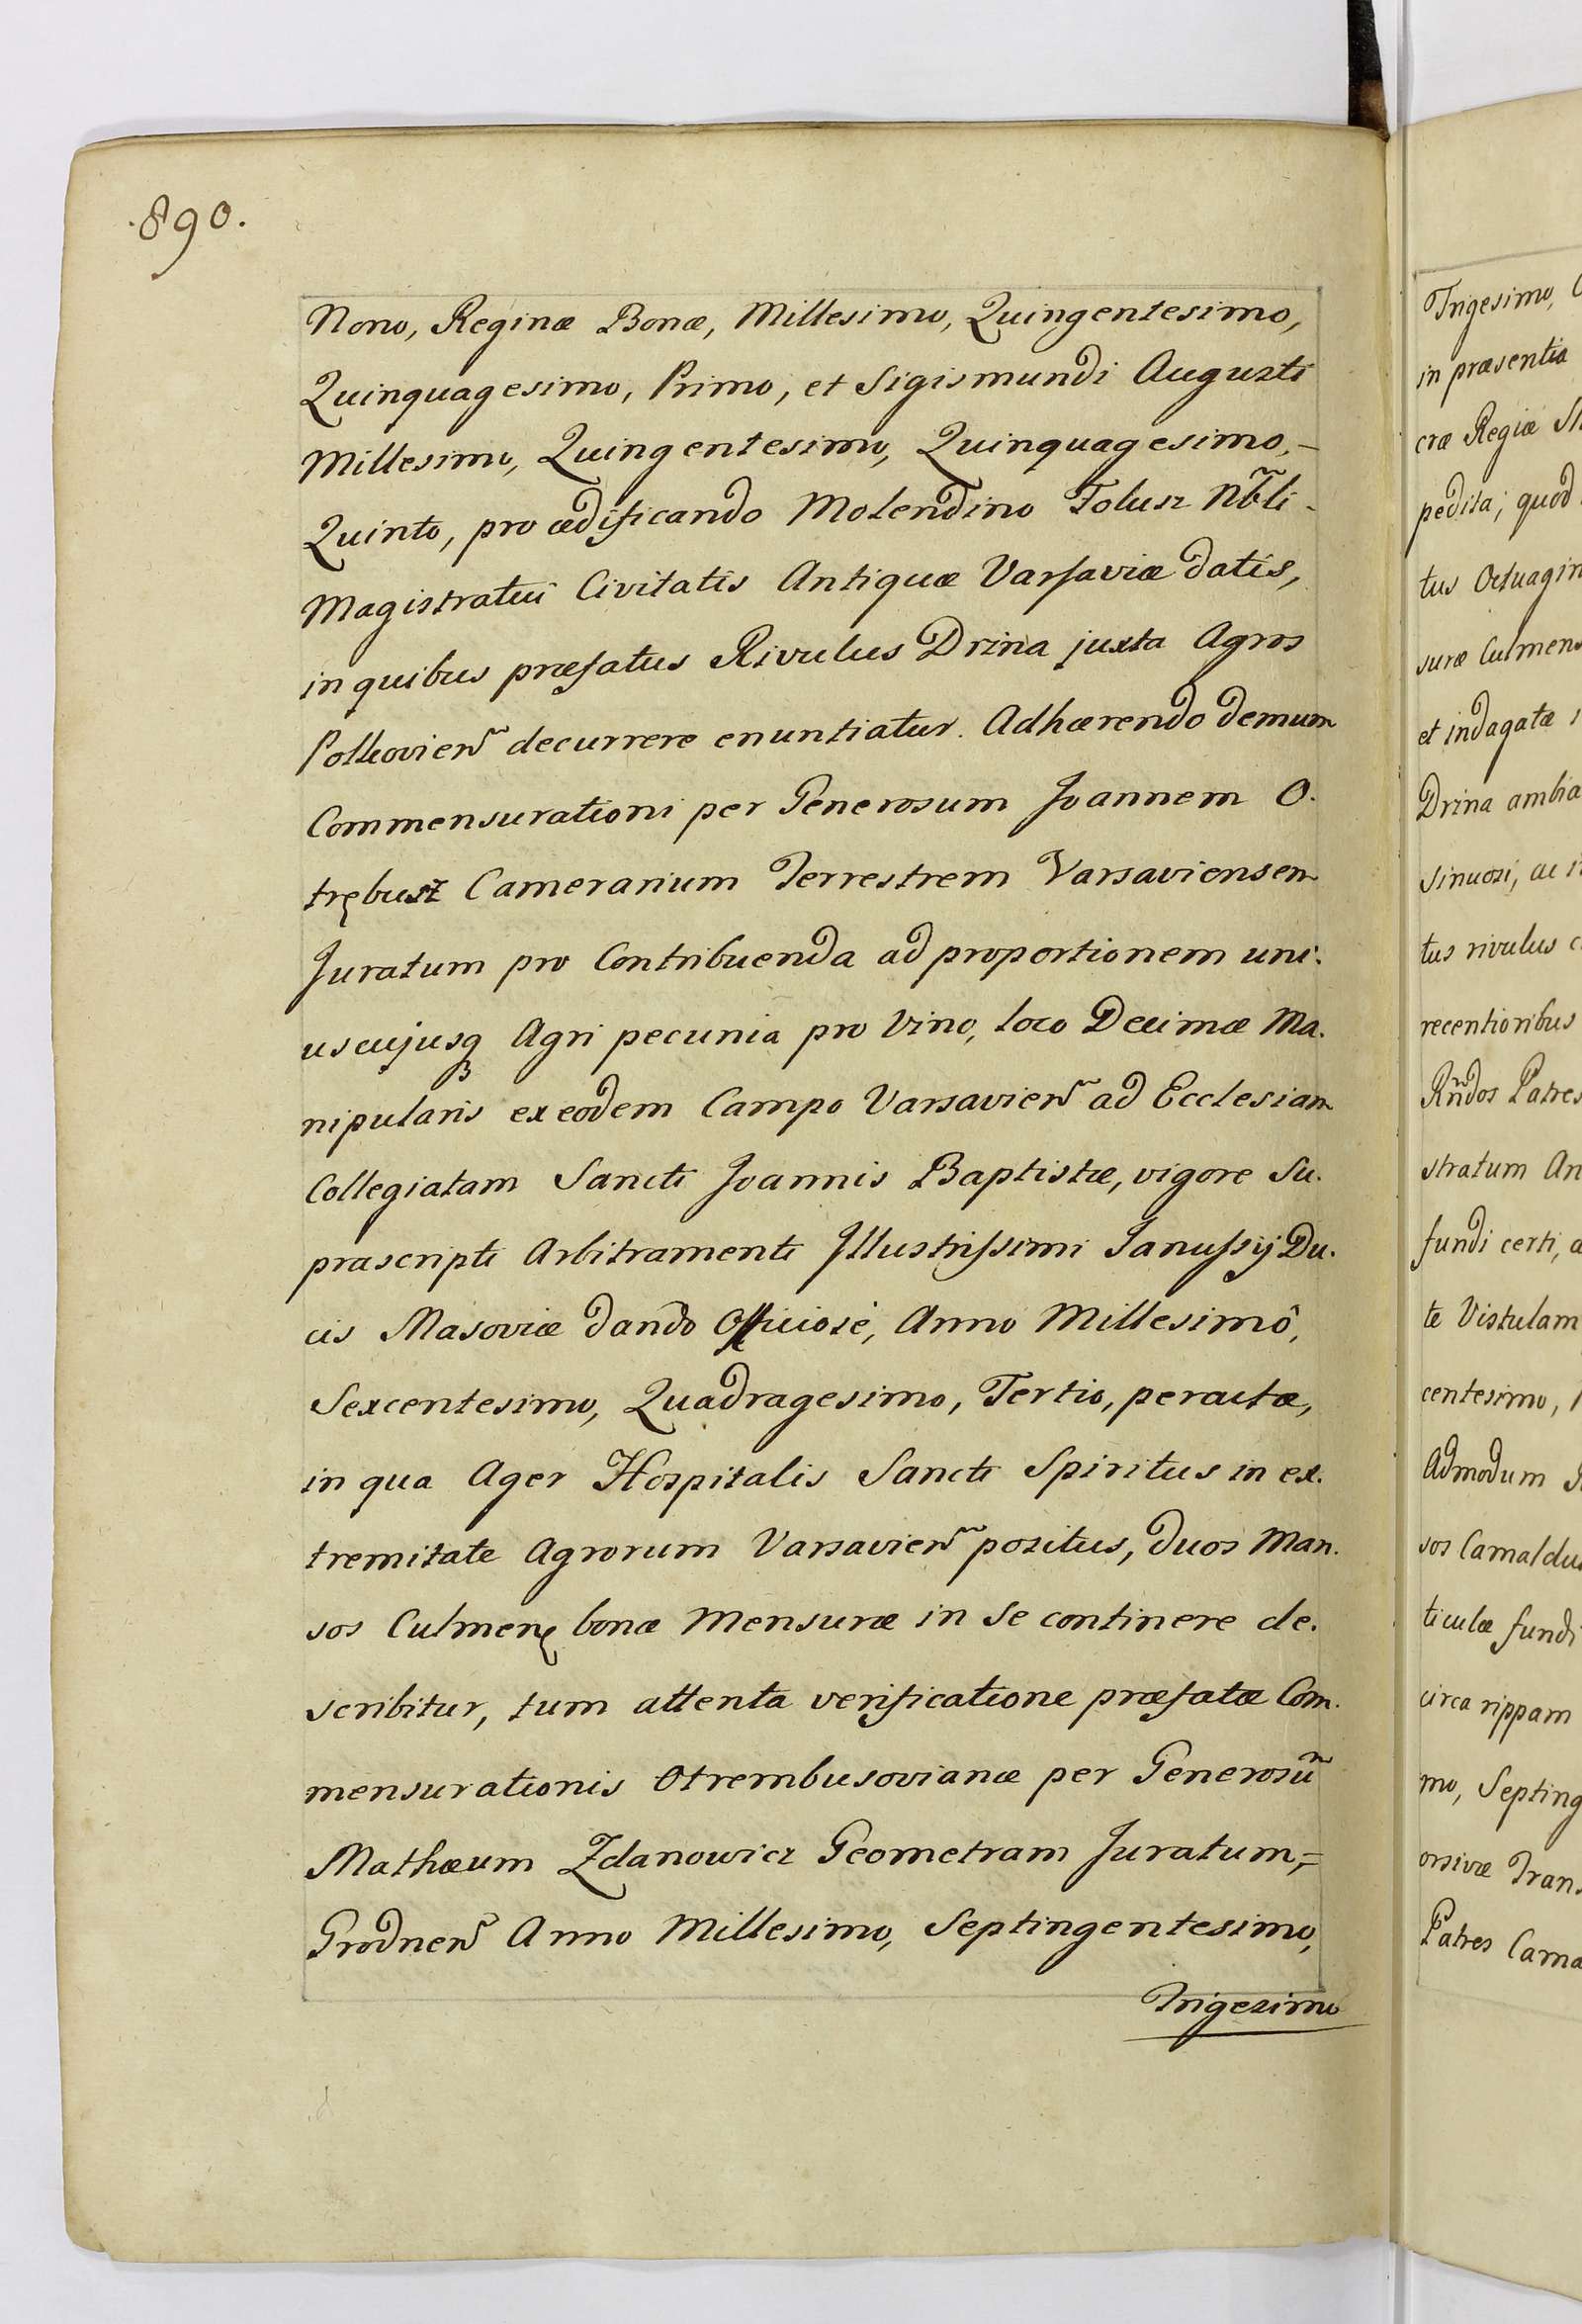 .890.
Nono, Reginæ Bonæ, Millesimo, Quingentesimo,
Quinquagesimo, Primo, et Sigismundi Augusti
Millesimo, Quingentesimo, Quinquagesimo,-
Quinto, pro ædificando Molendino Folusz Nbli-
Magistratui Civitatis Antiquæ Varsaviæ datis,
in quibus præfatus Rivulus Drzna juxta Agros
Polkovień decurrere enuntiatur. Adhærendo demum
Commensurationi per Generosum Joannem O.
trębusz Camerarium Terrestrem Varsaviensem
Juratum pro Contribuenda ad proportionem uni.
uscujusq Agri pecunia pro Vino, loco Decimæ Ma.
nipularis ex eodem Campo Varsavień ad Ecclesiam
Collegiatam Sancti Joannis Baptistæ, vigore Su.
prascripti Arbitramenti Illustrissimi Janussij Du.
cis Masoviæ dando Officiosè, Anno Millesimô,
Sexcentesimo, Quadragesimo, Tertio, peractæ,
in qua Ager Hospitalis Sancti Spiritus in ex.
tremitate Agrorum Varsavień positus, duos Man.
sos Culmen bonæ Mensuræ in se continere de.
scribitur, tum attenta verificatione præfatæ Com.
mensurationis Otrembusovianæ per Generosũ
Mathæum Zdanowicz Geometram Juratum,=
Grodneń Anno Millesimo, Septingentesimo,
Trigesimo
Trigesimo,
in præsentia
cræ Regiæ
pedita; quod
tus
suræ
et indagatæ
Drzna
sinuosi, ac
tus rivulus
recentioribus
Rñdos Patres
stratum
fundi certi,
te Vistulam
centesimo,
Admodum
sos
ticulæ fundi
circa rippam
mo,
Patres